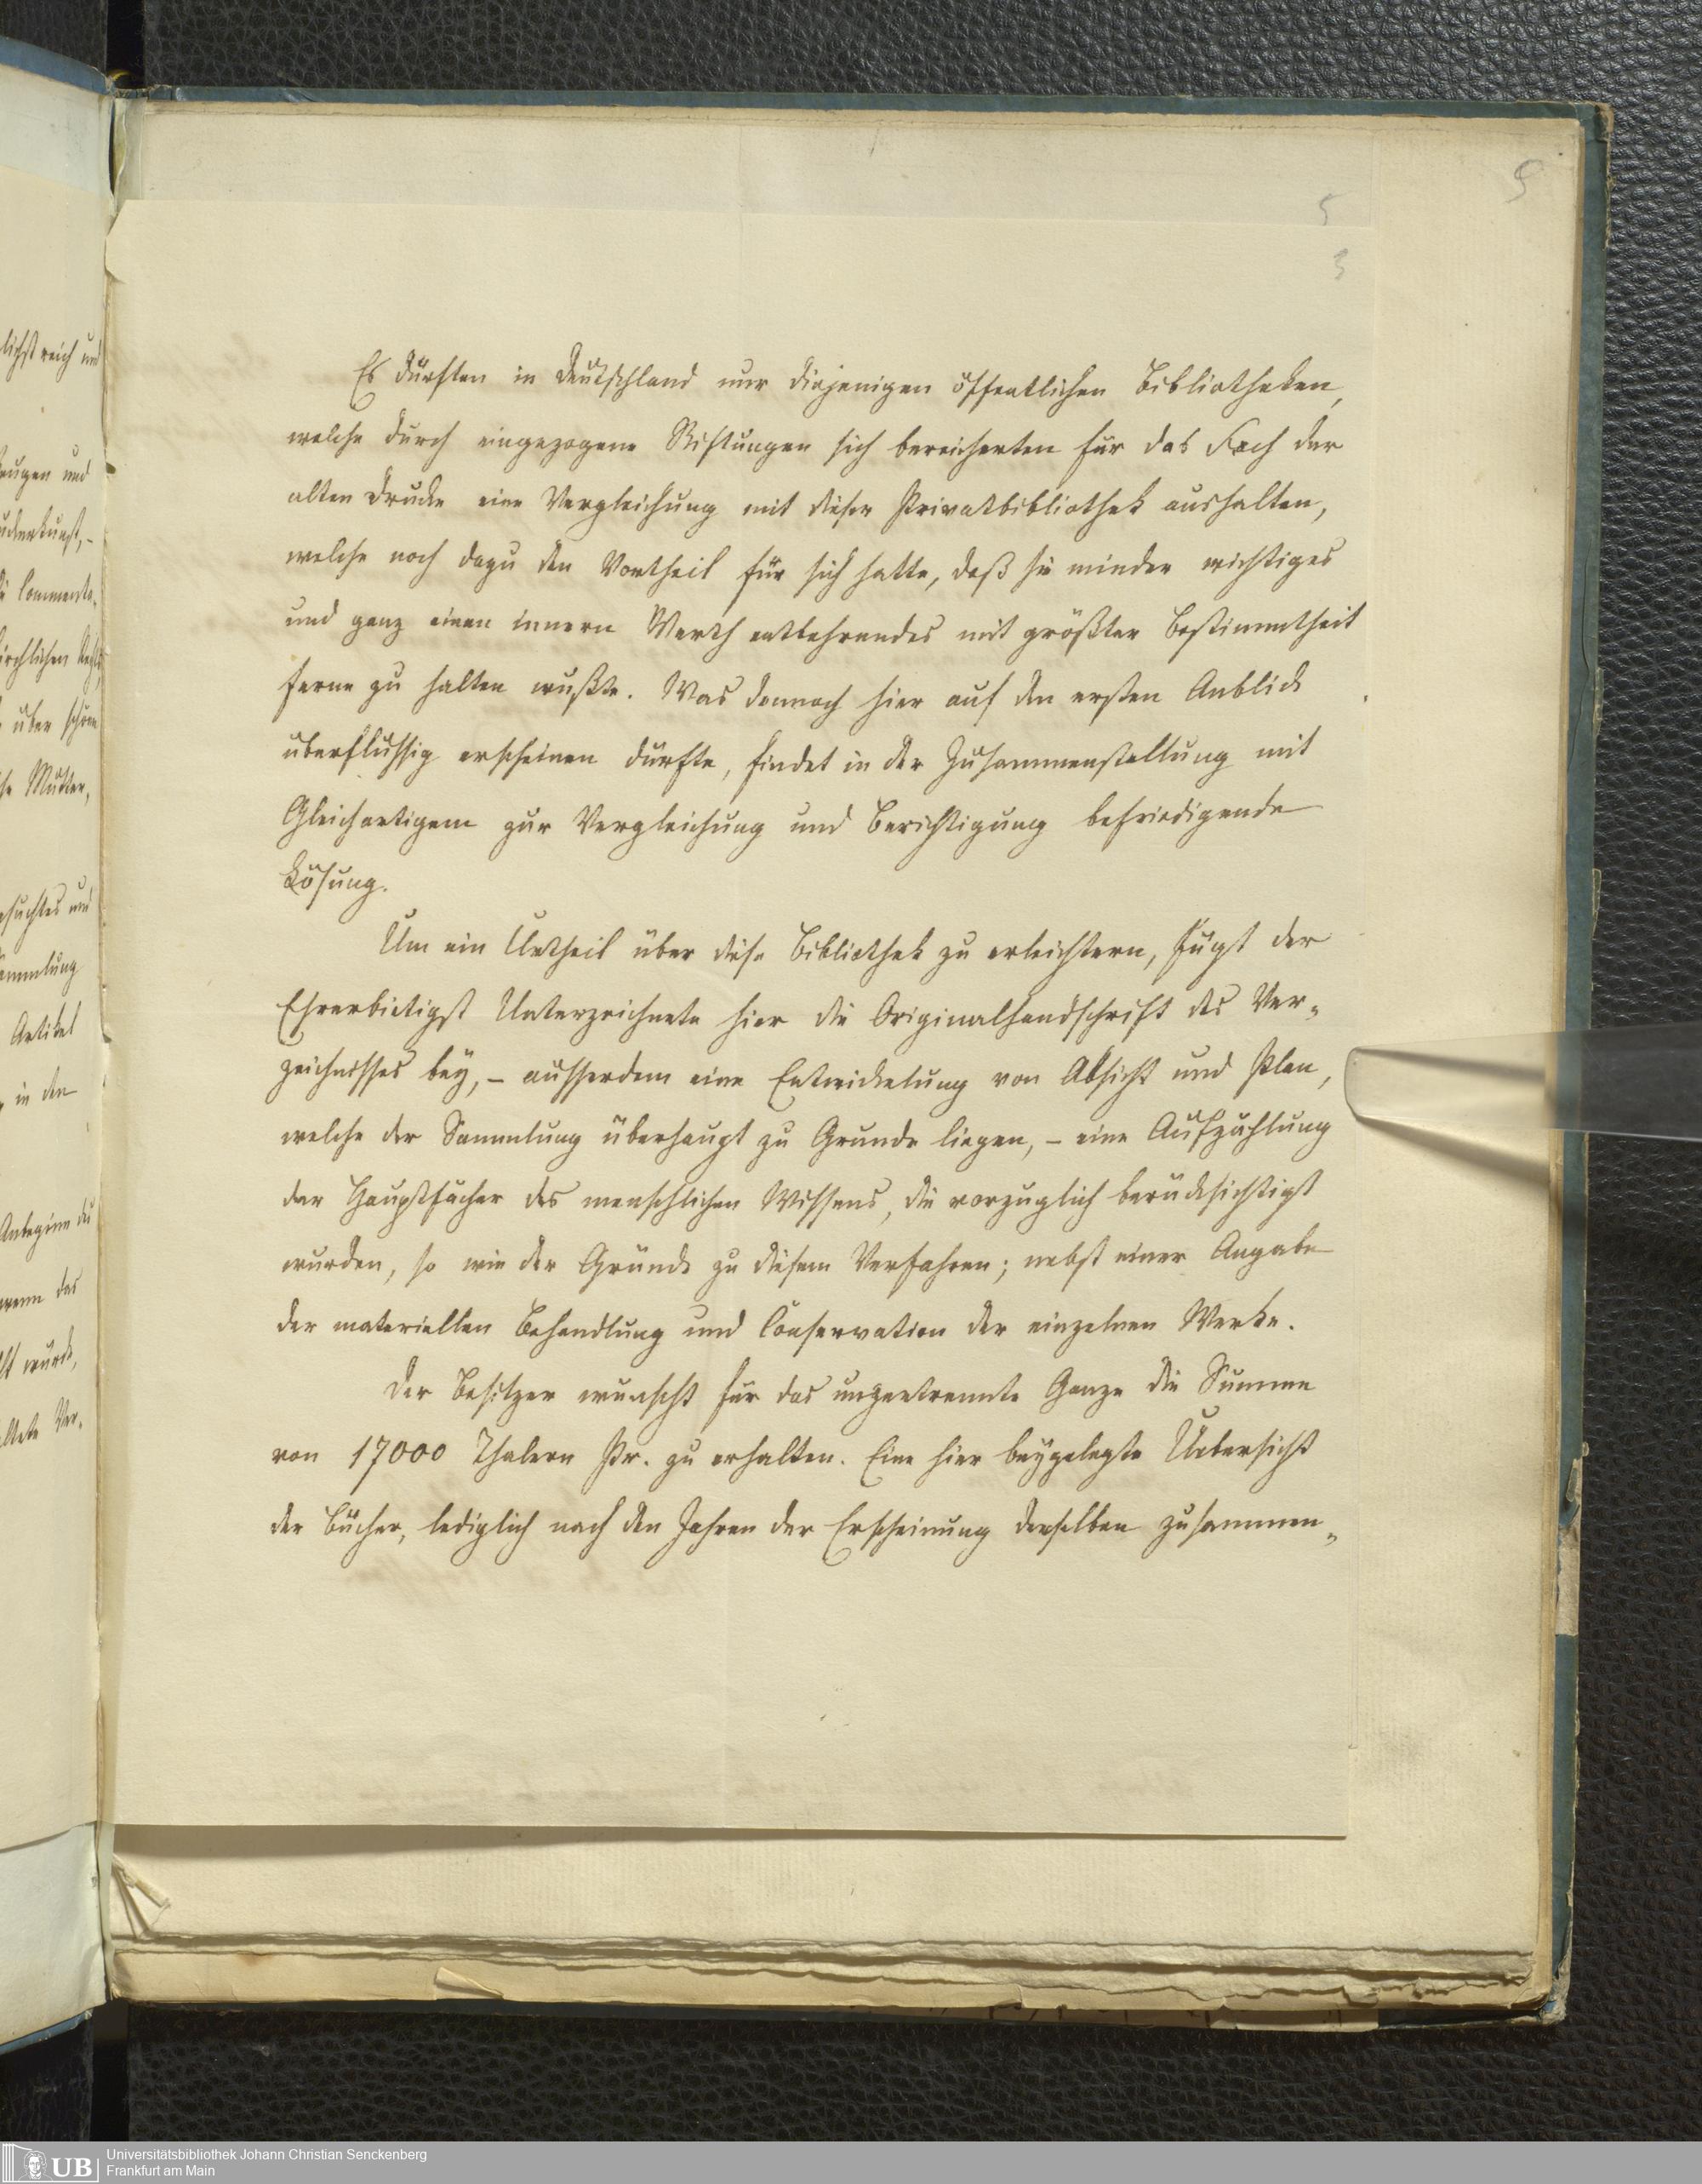 5
5
3
Es dürften in Deutschland nur diejenigen öffentlichen Bibliotheken,
welche durch eingezogene Stiftungen sich bereicherten für das Fach der
alten Drucke eine Vergleichung mit dieser Privatbibliothek aushalten,
welche noch dazu den Vortheil für sich hatte, daß sie minder wichtiges
und ganz einen innern Werth entbehrendes mit größter Bestimmtheit
ferne zu halten wußte. Was dennoch hier auf den ersten Anblick
überflüssig erscheinen dürfte, findet in der Zusammenstellung mit
Gleichartigem zur Vergleichung und Berichtigung befriedigende
Lösung.
Um ein Urtheil über diese Bibliothek zu erleichtern, fügt der
Ehrerbietigst Unterzeichnete hier die Originalhandschrift des Ver-
zeichnisses bey, – ausserdem eine Entwickelung von Absicht und Plan,
welche der Sammlung überhaupt zu Grunde liegen, – eine Aufzählung
der Hauptfächer des menschlichen Wissens, die vorzüglich berücksichtigt
wurden, so wie der Gründe zu diesem Verfahren; nebst einer Angabe
der materiellen Behandlung und Conservation der einzelnen Werke.
Der Besitzer wünscht für das ungetrennte Ganze die Summe
von 17000 Thalern Pr. zu erhalten. Eine hier beygelegte Uebersicht
der Bücher, lediglich nach den Jahren der Erscheinung derselben zusammen-
lichst reich und
zeugen und
über
Mütter,
suchtes und
ammlung
Artikel
in den
wenn das
wurde,
Ver-
UB
Universitätsbibliothek Johann Christian Senckenberg
Frankfurt am Main